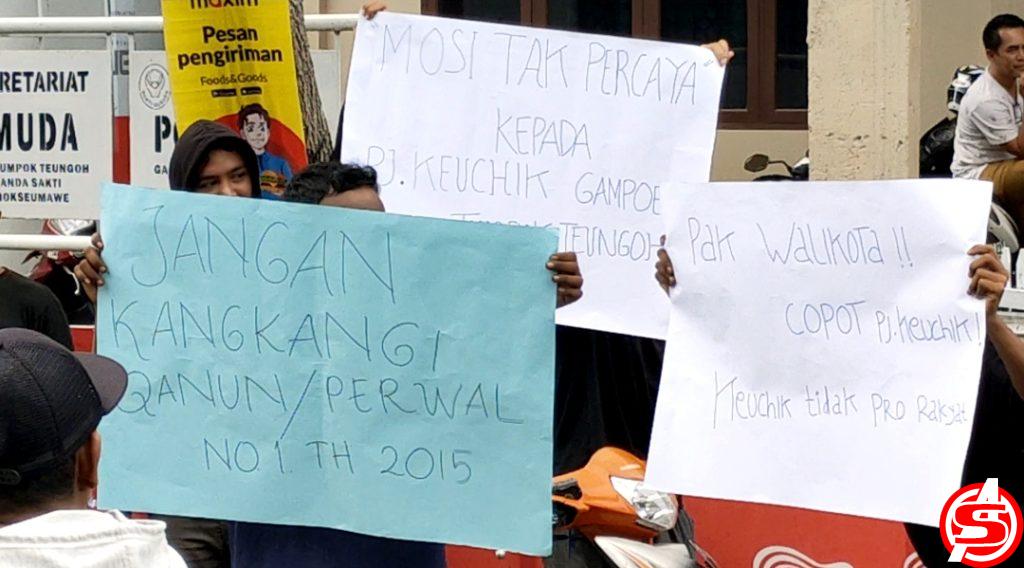 maxim
Pesan
pengiriman
Foods&Goods
RETARIAT
MUDA
UMPOK TEUNGOH
ANDA SAKTI
OKSEUMAWE
"MOSI TAK PERCAYA"
KEPADA
PJ. KEUCHIK GAMPOE
TEUNGOH
JANGAN
KANGKANGI
QANUN/PERWAL
NO. 1. TH 2015
Pak WALIKOTA!!
COPOT PJ. Keuchik!
Keuchik tidak PRO Rakyat